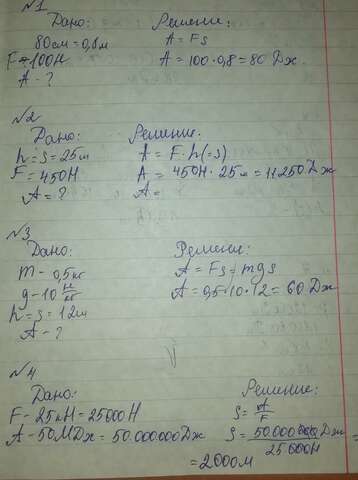 №1
Дано: Решение:
80см=0,8м A = FS
F=100Н A = 100·0,8=80 Дж.
A - ?
№2
Дано: Решение.
h=s=25м A = F·h(=s)
F=450Н A = 450Н·25м=11250Дж
A = ? A =
№3
Дано: Решение:
m - 0,5кг A = Fs=mgs
g-10 Н/кг A = 0,5·10·12=60 Дж
h=s=12м
A - ?
№4
Дано: Решение:
F-25кН=25000Н S= A/F
A-50МДж=50.000.000Дж S= 50.000000Дж/25000Н =
=2000м